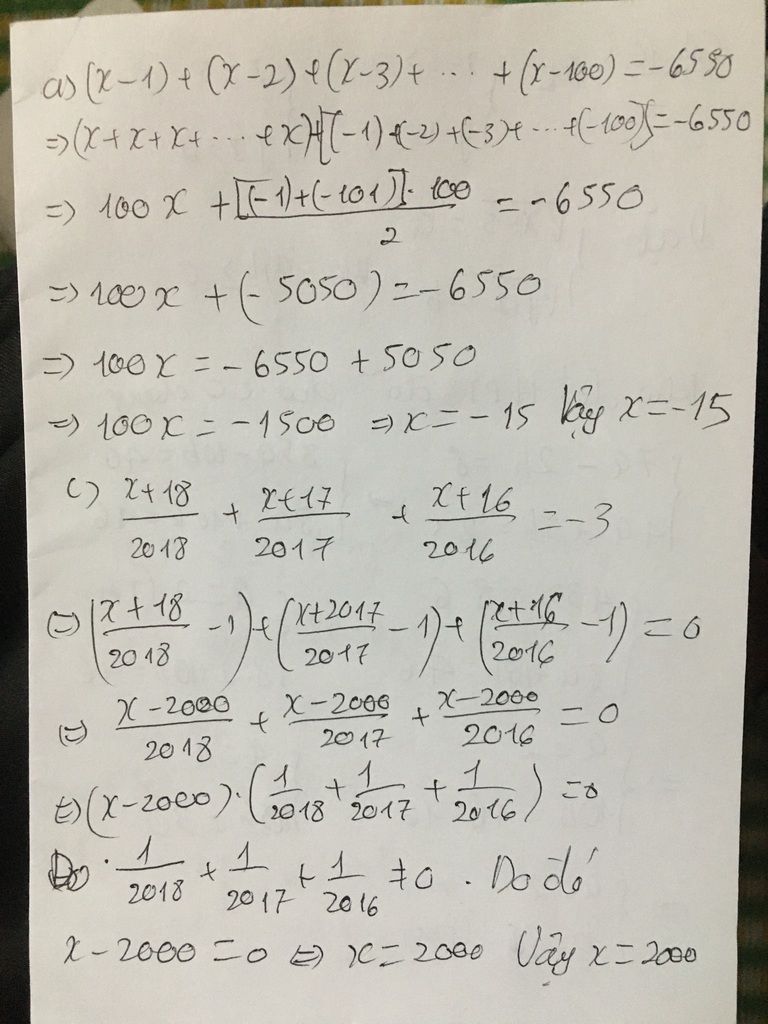 a) (x-1) + (x-2) + (x-3) + ... + (x-100) = -6550
=> (x + x + x + ... + x) + [(-1) + (-2) + (-3) + ... + (-100)] = -6550
=> 100x + [(-1)+(-101)]·100 / 2 = -6550
=> 100x + (-5050) = -6550
=> 100x = -6550 + 5050
=> 100x = -1500 => x = -15 Vậy x = -15
c) x+18/2018 + x+17/2017 + x+16/2016 = -3
<=> (x+18/2018 - 1) + (x+2017/2017 - 1) + (x+16/2016 - 1) = 0
<=> x-2000/2018 + x-2000/2017 + x-2000/2016 = 0
<=> (x-2000)·(1/2018 + 1/2017 + 1/2016) = 0
Do 1/2018 + 1/2017 + 1/2016 ≠ 0. Do đó
x-2000 = 0 <=> x = 2000 Vậy x = 2000